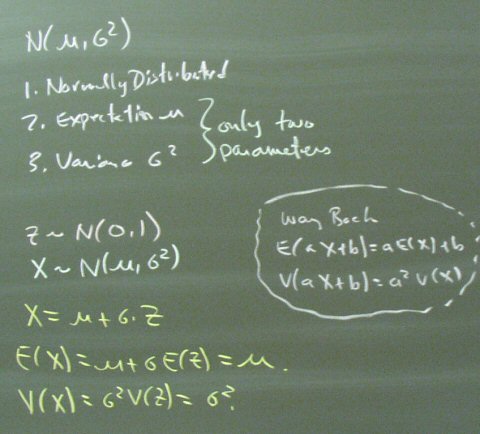 N(μ, σ²)
1. Normally Distributed
2. Expectation μ
3. Variance σ²
} only two
parameters
Z ~ N(0,1)
X ~ N(μ, σ²)
Way Back
E(aX+b)=aE(X)+b
V(aX+b)=a²V(X)
X = μ + σ·Z
E(X)=μ+σE(Z)=μ.
V(X)=σ²V(Z)=σ².